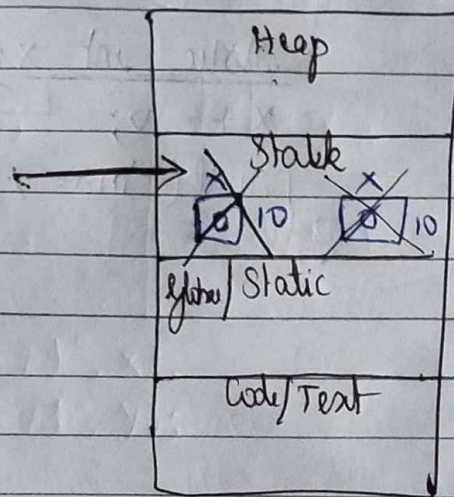 Heap
Stack
x x
0 10 0 10
Global/Static
Code/Text